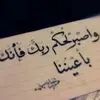 واصبر لحكم ربك فإنك
بأعيننا